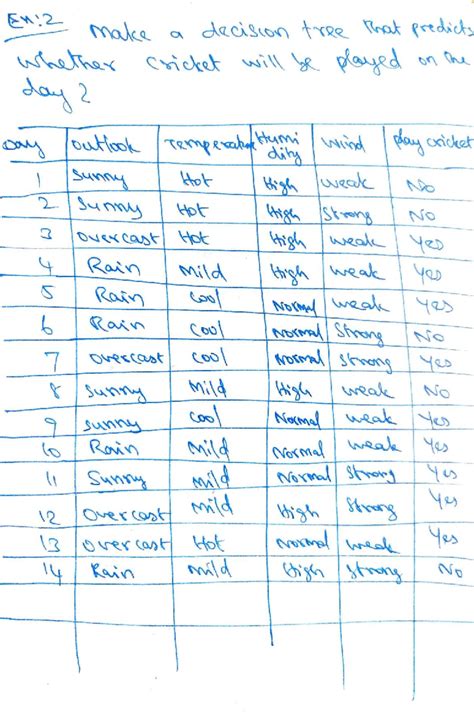 Ex:2 Make a decision tree that predicts
whether cricket will be played on the
day?
Day Outlook Temperature Humidity Wind Play cricket
1 Sunny Hot High Weak No
2 Sunny Hot High Strong No
3 Overcast Hot High Weak Yes
4 Rain Mild High Weak Yes
5 Rain Cool Normal Weak Yes
6 Rain Cool Normal Strong No
7 Overcast Cool Normal Strong Yes
8 Sunny Mild High Weak No
9 Sunny Cool Normal Weak Yes
10 Rain Mild Normal Weak Yes
11 Sunny Mild Normal Strong Yes
12 Overcast Mild High Strong Yes
13 Overcast Hot Normal Weak Yes
14 Rain Mild High Strong No